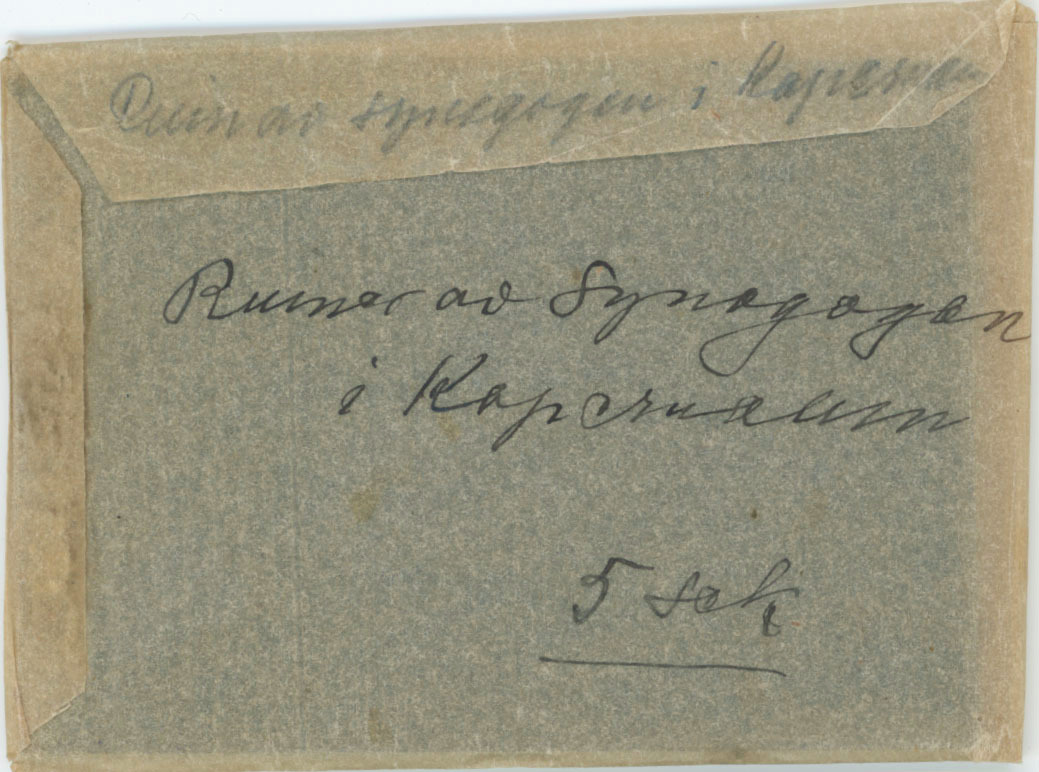 Ruin av synagogen i Kapernau
Ruiner av Synagogen
i Kapernaum
5 sek